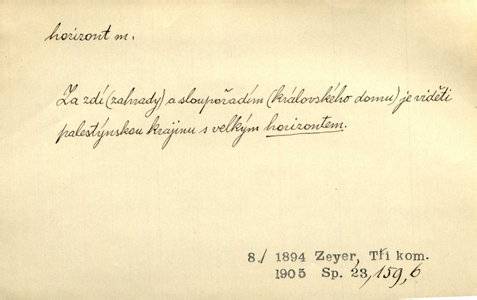 horizont m.
Za zdí (zahrady) a sloupořadím (královského domu) je viděti
palestýnskou krajinu s velkým horizontem.
8./ 1894 Zeyer, Tři kom.
1905 Sp. 23,159,6